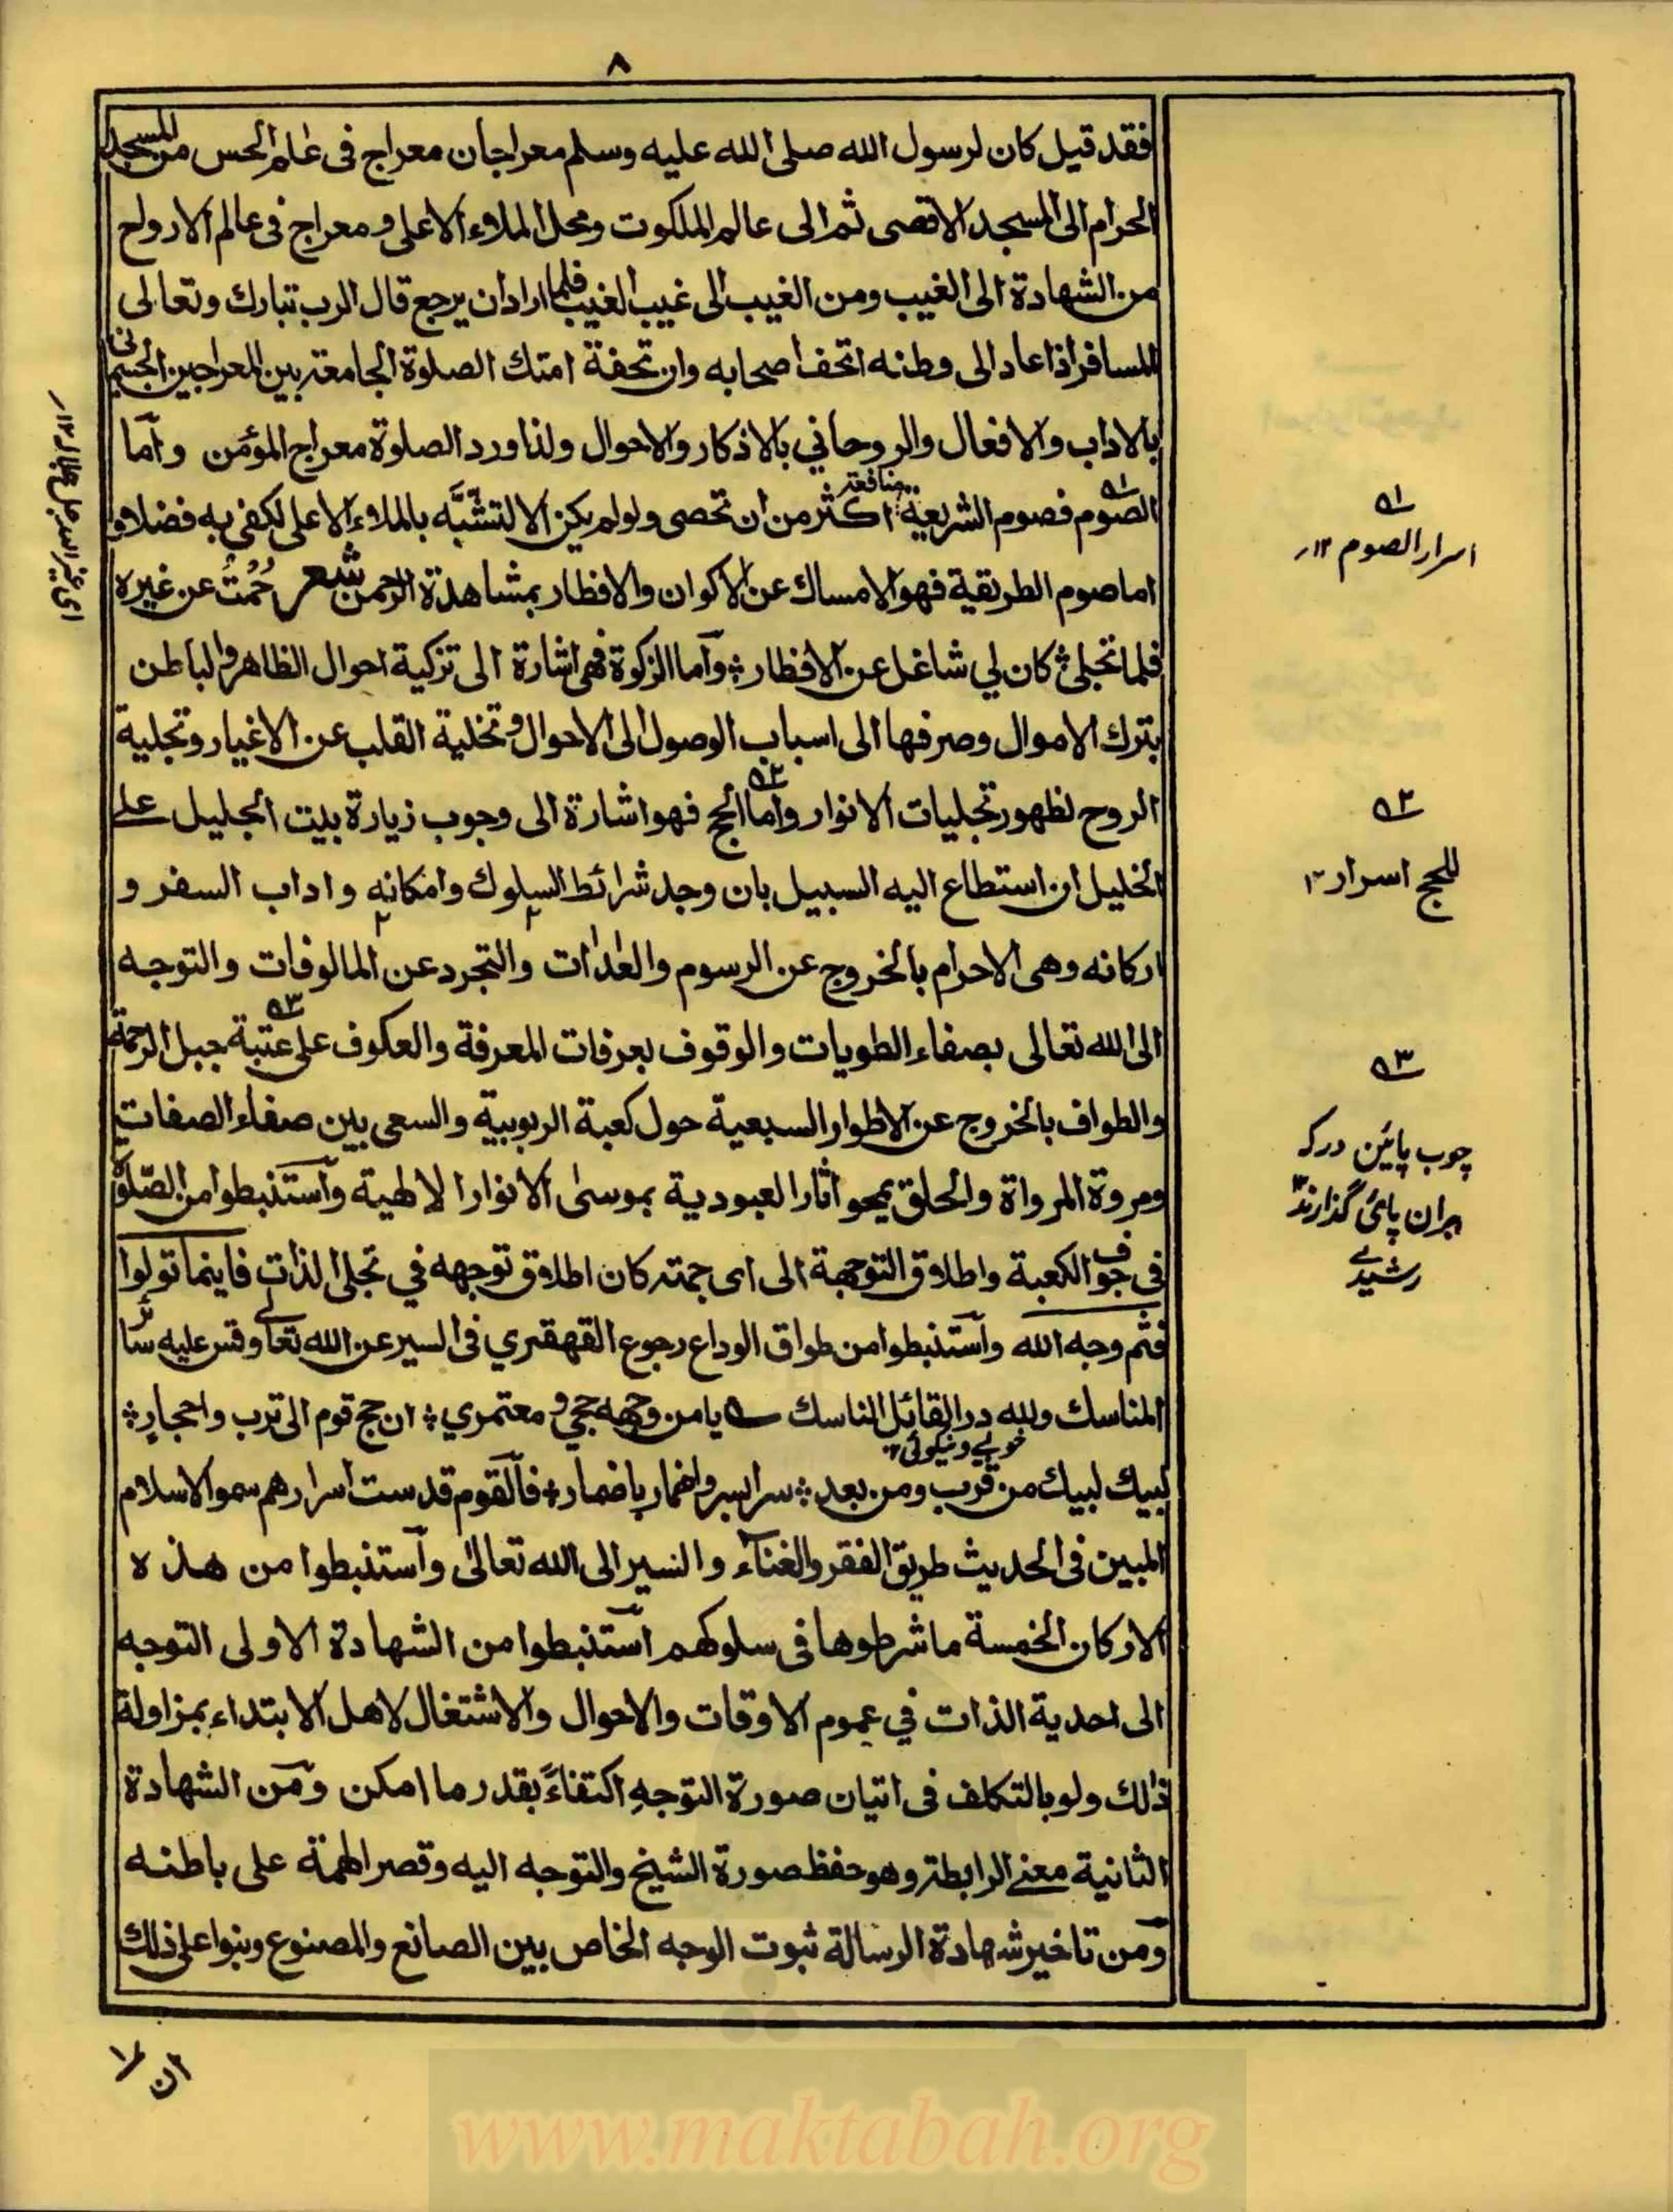 ٨
فقد قيل كان لرسول الله صلى الله عليه وسلم معراجان معراج فى عالم الحس من المسجد
الحرام الى المسجد الاقصى ثم الى عالم الملكوت ومحل الملاء الاعلى ومعراج فى عالم الارواح
من الشهادة الى الغيب ومن الغيب الى غيب الغيب فلما اراد ان يرجع قال الرب تبارك وتعالى
المسافر اذا عاد الى وطنه اتحف اصحابه وان تحفة امتك الصلوة الجامعة بين المعراجين الجسمانى
بالاداب والافعال والروحاني بالاذكار والاحوال ولذا ورد الصلوة معراج المؤمن وآما
الصوم فصوم الشريعة منافعه اكثر من ان تحصى ولو لم يكن الا لتشبّه بالملاء الاعلى لكفى به فضلا و
اما صوم الطريقية فهو الامساك عن الاكوان والافطار بمشاهدة الرحمن شعر صُمْتُ عن غيره
فلما تجلى ؞ كان لي شاغل عن الافطار ؞ وآما الزكوة فهى اشارة الى تزكية احوال الظاهر والباطن
بترك الاموال وصرفها الى اسباب الوصول الى الاحوال وتخلية القلب عن الاغيار وتجلية
الروح لظهور تجليات الانوار وآما الحج فهو اشارة الى وجوب زيارة بيت الجليل على
الخليل ان استطاع اليه السبيل بان وجد شرائط السلوك وامكانه واداب السفر و
اركانه وهى الاحرام بالخروج عن الرسوم والعادات والتجرد عن المالوفات والتوجه
الى الله تعالى بصفاء الطويات والوقوف بعرفات المعرفة والعكوف على عتبة جبل الرحمة
والطواف بالخروج عن الاطوار السبعية حول كعبة الربوبية والسعى بين صفاء الصفات
ومروة المرواة والحلق بمحو اثار العبودية بموسى الانوار الالهية وآستنبطوا من الصّلوة
فى جوف الكعبة واطلاق التوجهة الى اى جهته كان اطلاق توجهه في تجلى الذات فاينما تولوا
فثم وجه الله وآستنبطوا من طواف الوداع رجوع القهقرى فى السير عن الله تعالى وقس عليه سائر
المناسك ولله در القائل الناسك يا من وجهه حجي ومعتمري ؞ ان حج قوم الى ترب واحجار ؞
خوبي ونيكوئى ١٢
لبيك لبيك من قرب ومن بعد ؞ سرا بسر واضمار باضمار ؞ فآلقوم قدست اسرارهم سموا الاسلام
المبين فى الحديث طريق الفقر والغناء والسير الى الله تعالى وآستنبطوا من هذه
الاركان الخمسة ما شرطوها فى سلوكهم آستنبطوا من الشهادة الاولى التوجه
الى احدية الذات في عموم الاوقات والاحوال والاشتغال لاهل الابتداء بمزاولة
ذلك ولو بالتكلف فى اتيان صورة التوجه اكتفاءً بقدر ما امكن ومن الشهادة
الثانية معنى الرابطة وهو حفظ صورة الشيخ والتوجه اليه وقصر الهمة على باطنه
ومن تاخير شهادة الرسالة ثبوت الوجه الخاص بين الصانع والمصنوع وبنوا على ذلك
ان لا
١ه
اسرار الصوم ١٢
٢ه
للحج اسرار ١٢
٣ه
چوب پائين درکه
بران پائ گذارند ١٢
رشيدى
www.maktabah.org